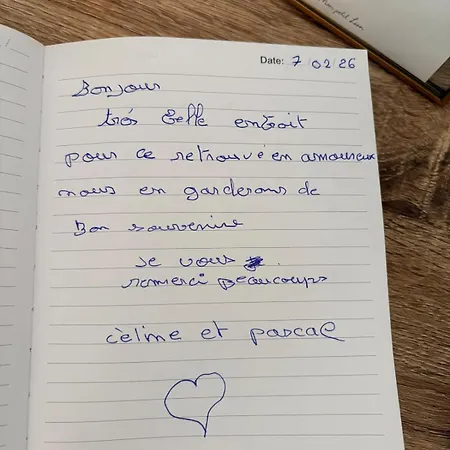 Mon petit Lien
Date: 7 02 26
Bonjour
très belle endroit
pour ce retrouvé en amoureux
nous en garderons de
Bon souvenire
Je vous
remerci Beaucoups
cèline et pascal